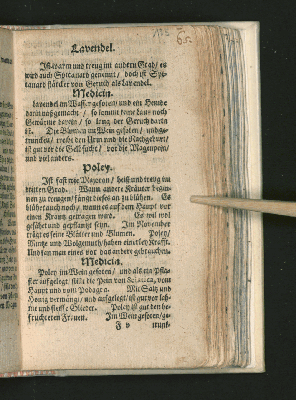 Lavendel.
Jst warm und treug im andern Grad / es
wird auch Spicanard genennt / doch ist Spi-
canard stärcker von Geruch als Lavendel.
Medicin.
Lavendel im Wasser gesotten / und ein Hembd
darin naß gemacht / so kommt keine Laus noch
Gewürme darein / so lang der Geruch darin
ist. Die Blumen im Wein gesotten / und ge-
truncken / treibt den Urin und die Nachgeburt /
ist gut vor die Gelbsucht / vor die Magenpein /
und viel anders.
Poley.
Jst fast wie Majoran / heiß und treug im
dritten Grad. Wann andere Kräuter begin-
nen zu treugen / fängt dieses an zu blühen. Es
blühet auch noch / wann es auf dem Haupt vor
einen Krantz getragen ward. Es wil wol
gesäet und gepflantzt seyn. Im November
trägt es seine Blätter und Blumen. Poley /
Müntz und Wolgemuth / haben einerley Krafft.
Und kan man eines vor das andere gebrauchen.
Medicin.
Poley im Wein gesotten / und als ein Pfla-
ster aufgelegt / stillt die Pein von Sciatica, vom
Haupt und vom Podagra. Mit Saltz und
Honig vermengt / und aufgelegt / ist gut vor lah-
me und steiffe Glieder. Poley ist gut den be-
fruchteten Frauen. Im Wein gesotten / ge-
F v